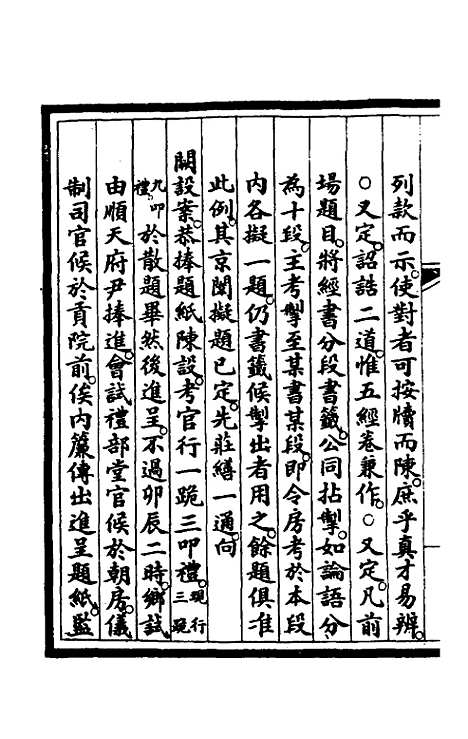 列款而示。使對者可按牘而陳。庶乎真才易辨。
○又定。詔誥二道。惟五經卷兼作。○又定。凡前
場題目。將經書分段書籤。公同拈掣。如論語分
為十段。主考掣至某書某段。即令房考於本段
內各擬一題。仍書籤候掣出者用之。餘題俱准
此例。其京闈擬題已定。先莊繕一通。向
闕設案。恭捧題紙陳設。考官行一跪三叩禮。現行三跪
九叩禮。於散題畢然後進呈。不過卯辰二時。鄉試
由順天府尹捧進。會試禮部堂官候於朝房。儀
制司官候於貢院前。俟內簾傳出進呈題紙。監